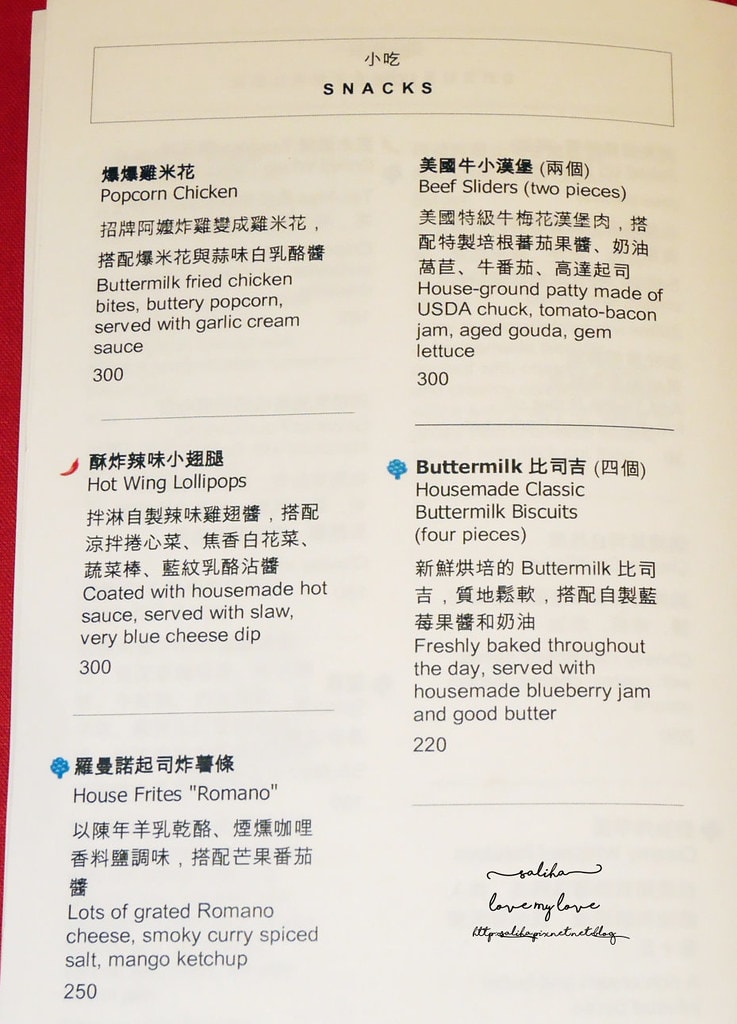 小吃
SNACKS
爆爆雞米花
Popcorn Chicken
招牌阿嬤炸雞變成雞米花，
搭配爆米花與蒜味白乳酪醬
Buttermilk fried chicken
bites, buttery popcorn,
served with garlic cream
sauce
300
酥炸辣味小翅腿
Hot Wing Lollipops
拌淋自製辣味雞翅醬，搭配
涼拌捲心菜、焦香白花菜、
蔬菜棒、藍紋乳酪沾醬
Coated with housemade hot
sauce, served with slaw,
very blue cheese dip
300
羅曼諾起司炸薯條
House Frites "Romano"
以陳年羊乳乾酪、煙燻咖哩
香料鹽調味，搭配芒果番茄
醬
Lots of grated Romano
cheese, smoky curry spiced
salt, mango ketchup
250
美國牛小漢堡 (兩個)
Beef Sliders (two pieces)
美國特級牛梅花漢堡肉，搭
配特製培根蕃茄果醬、奶油
萵苣、牛番茄、高達起司
House-ground patty made of
USDA chuck, tomato-bacon
jam, aged gouda, gem
lettuce
300
Buttermilk 比司吉 (四個)
Housemade Classic
Buttermilk Biscuits
(four pieces)
新鮮烘培的 Buttermilk 比司
吉，質地鬆軟，搭配自製藍
莓果醬和奶油
Freshly baked throughout
the day, served with
housemade blueberry jam
and good butter
220
saliha
love my love
http:saliha.pixnet.net.blog